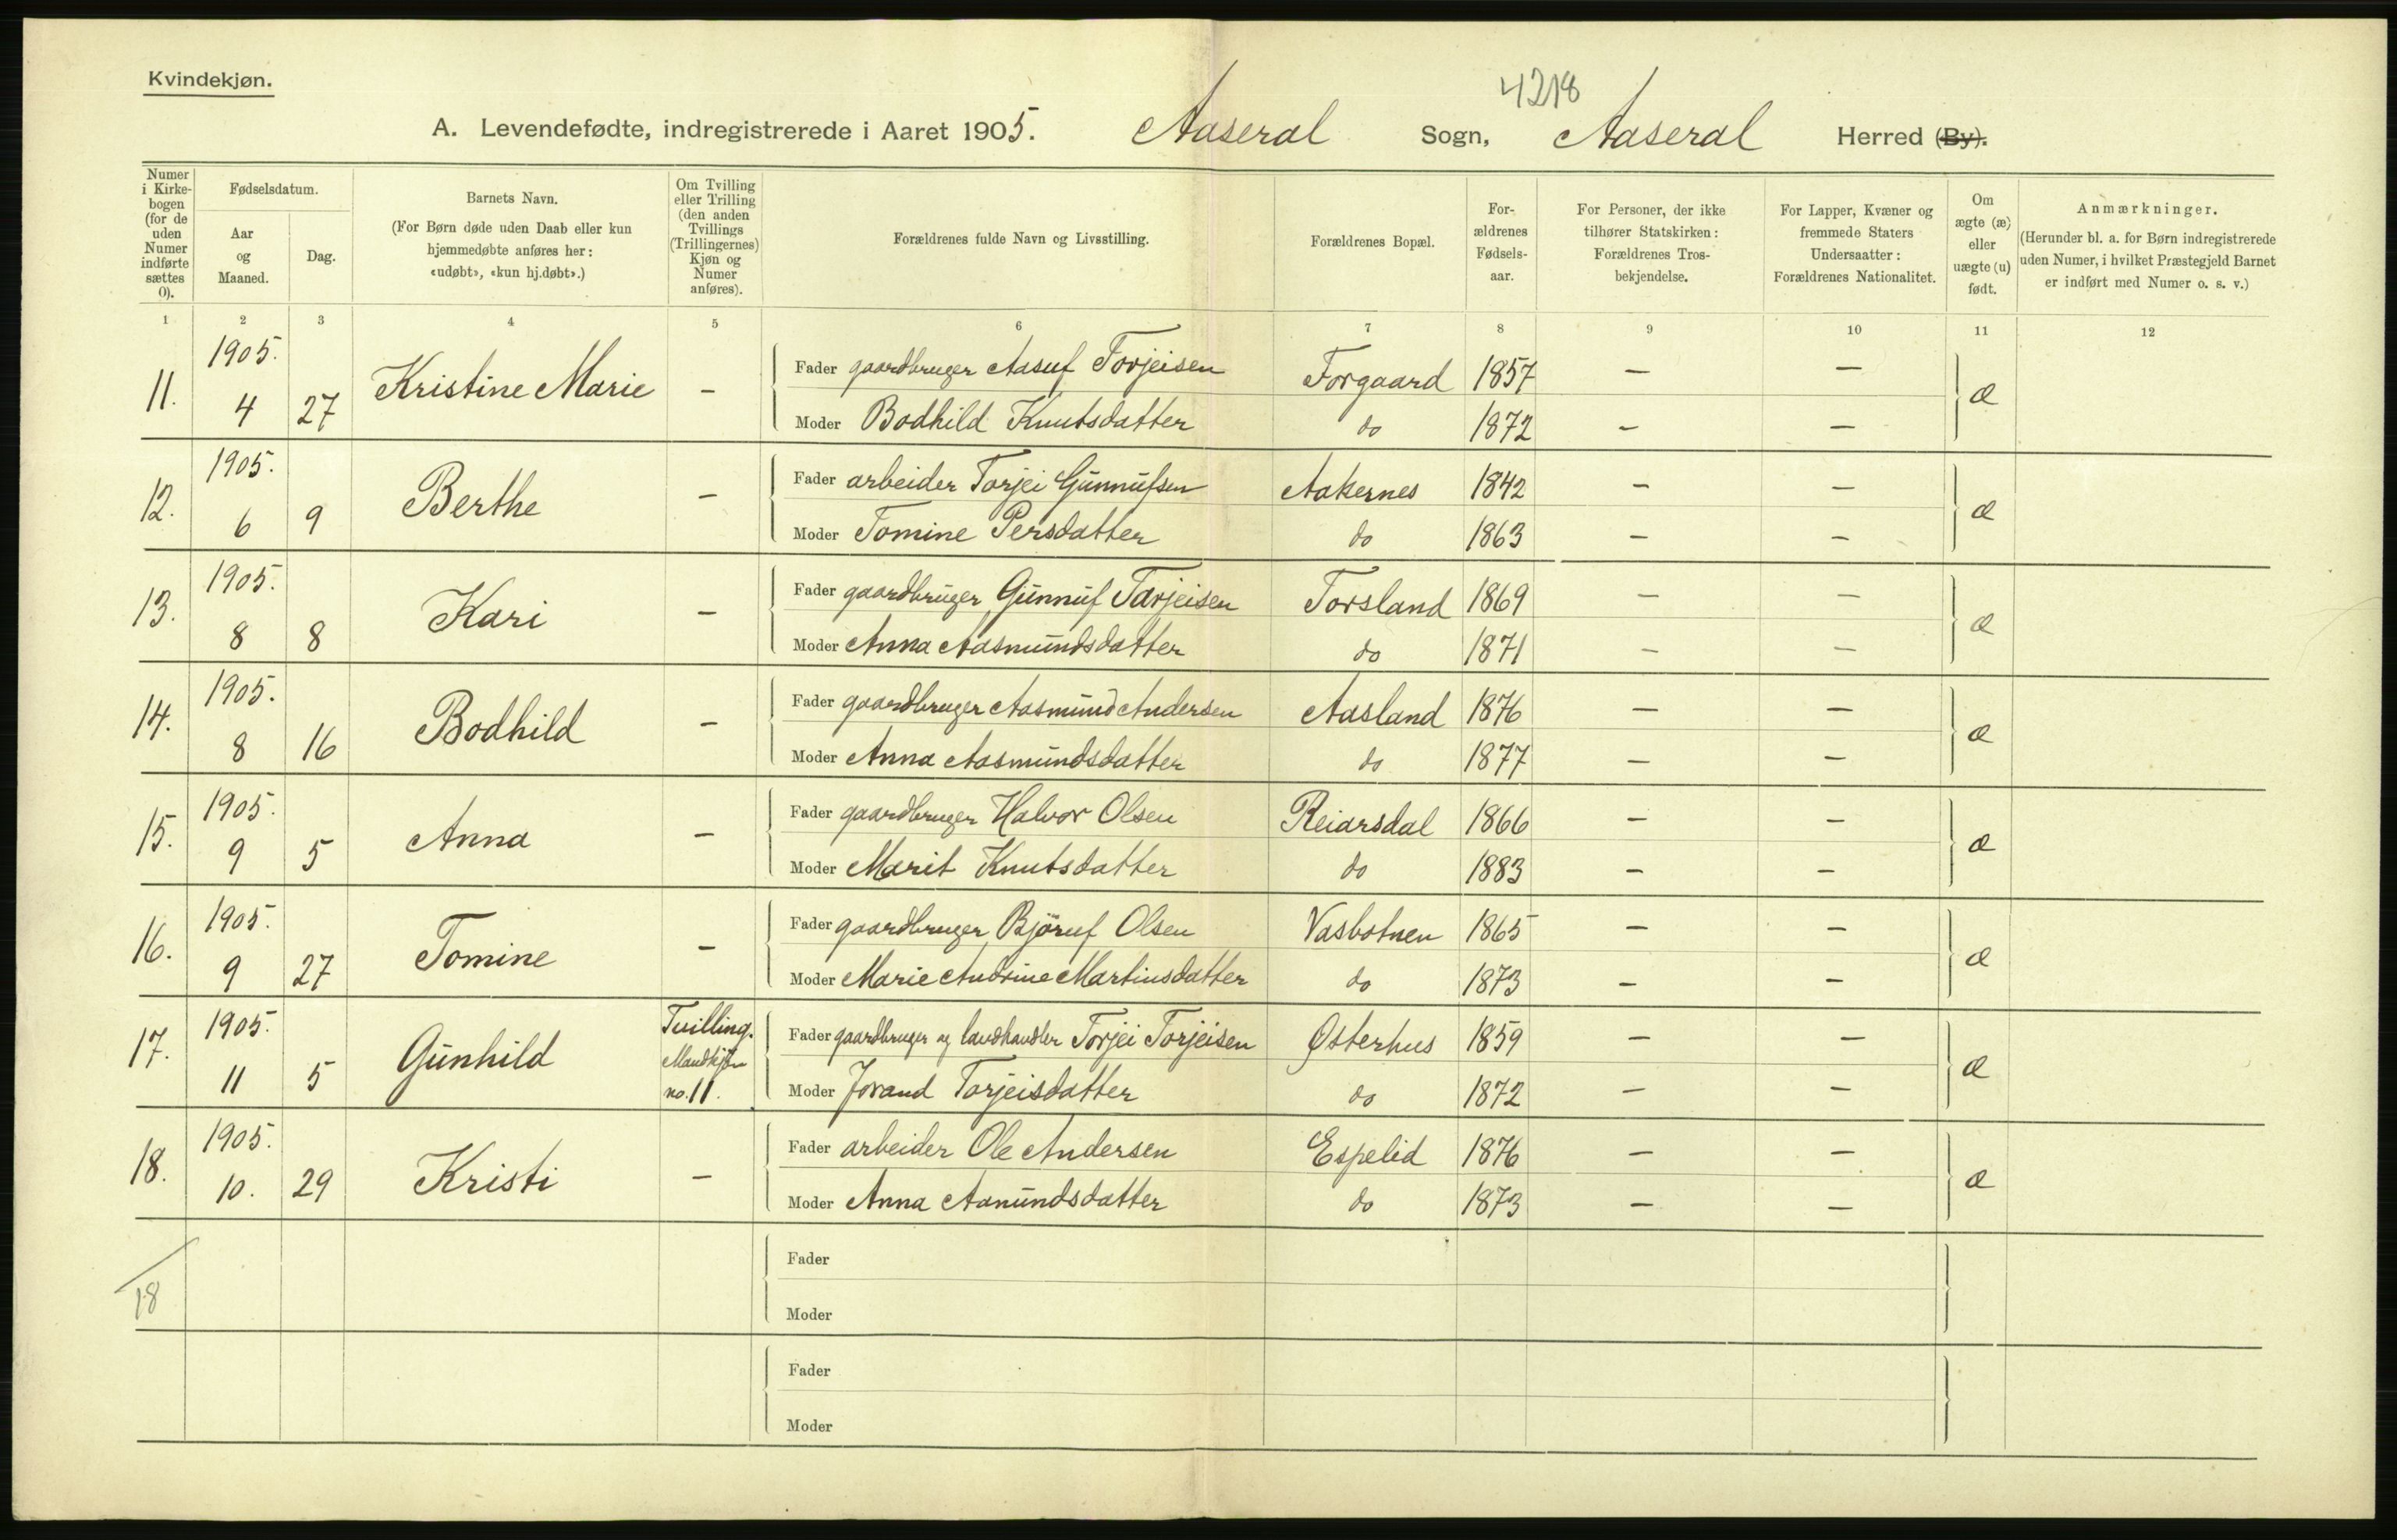 Kvindekjøn.
4218
A. Levendefødte, indregistrerede i Aaret 1905. Aaseral Sogn, Aaseral Herred (By).
Numer i Kirke-bogen (for de uden Numer indførte sættes 0).
Fødselsdatum.
Aar og Maaned.
Dag.
Barnets Navn.
(For Børn døde uden Daab eller kun
hjemmedøbte anføres her:
«udøbt», «kun hj.døbt».)
Om Tvilling eller Trilling (den anden Tvillings (Trillingernes) Kjøn og Numer anføres).
Forældrenes fulde Navn og Livsstilling.
Forældrenes Bopæl.
For-ældrenes Fødsels-aar.
For Personer, der ikke tilhører Statskirken: Forældrenes Tros-bekjendelse.
For Lapper, Kvæner og fremmede Staters Undersaatter: Forældrenes Nationalitet.
Om ægte (æ) eller uægte (u) født.
Anmærkninger.
(Herunder bl. a. for Børn indregistrerede
uden Numer, i hvilket Præstegjeld Barnet
er indført med Numer o. s. v.)
1 2 3 4 5 6 7 8 9 10 11 12
11. 1905. 4 27 Kristine Marie –
Fader gaardbruger Aasuf Torjeisen Forgaard 1857 – – æ
Moder Bodhild Knutsdatter do 1872 – –
12. 1905. 6 9 Berthe –
Fader arbeider Torjei Gunnufsen Aakernes 1842 – – æ
Moder Tomine Persdatter do 1863 – –
13. 1905. 8 8 Kari –
Fader gaardbruger Gunnuf Tarjeisen Torsland 1869 – – æ
Moder Anna Aasmundsdatter do 1871 – –
14. 1905. 8 16 Bodhild –
Fader gaardbruger Aasmund Andersen Aasland 1876 – – æ
Moder Anna Aasmundsdatter do 1877 – –
15. 1905. 9 5 Anna –
Fader gaardbruger Halvor Olsen Reiarsdal 1866 – – æ
Moder Marit Knutsdatter do 1883 – –
16. 1905. 9 27 Tomine –
Fader gaardbruger Björuf Olsen Vasbotnen 1865 – – æ
Moder Marie Andrine Martinsdatter do 1873 – –
17. 1905. 11 5 Gunhild Tvilling. Mandkjøn no. 11.
Fader gaardbruger og landhandler Torjei Torjeisen Østerhus 1859 – – æ
Moder Jorand Tarjeisdatter do 1872 – –
18. 1905. 10. 29 Kristi –
Fader arbeider Ole Andersen Espelid 1876 – – æ
Moder Anna Aanundsdatter do 1873 – –
18
Fader
Moder
Fader
Moder